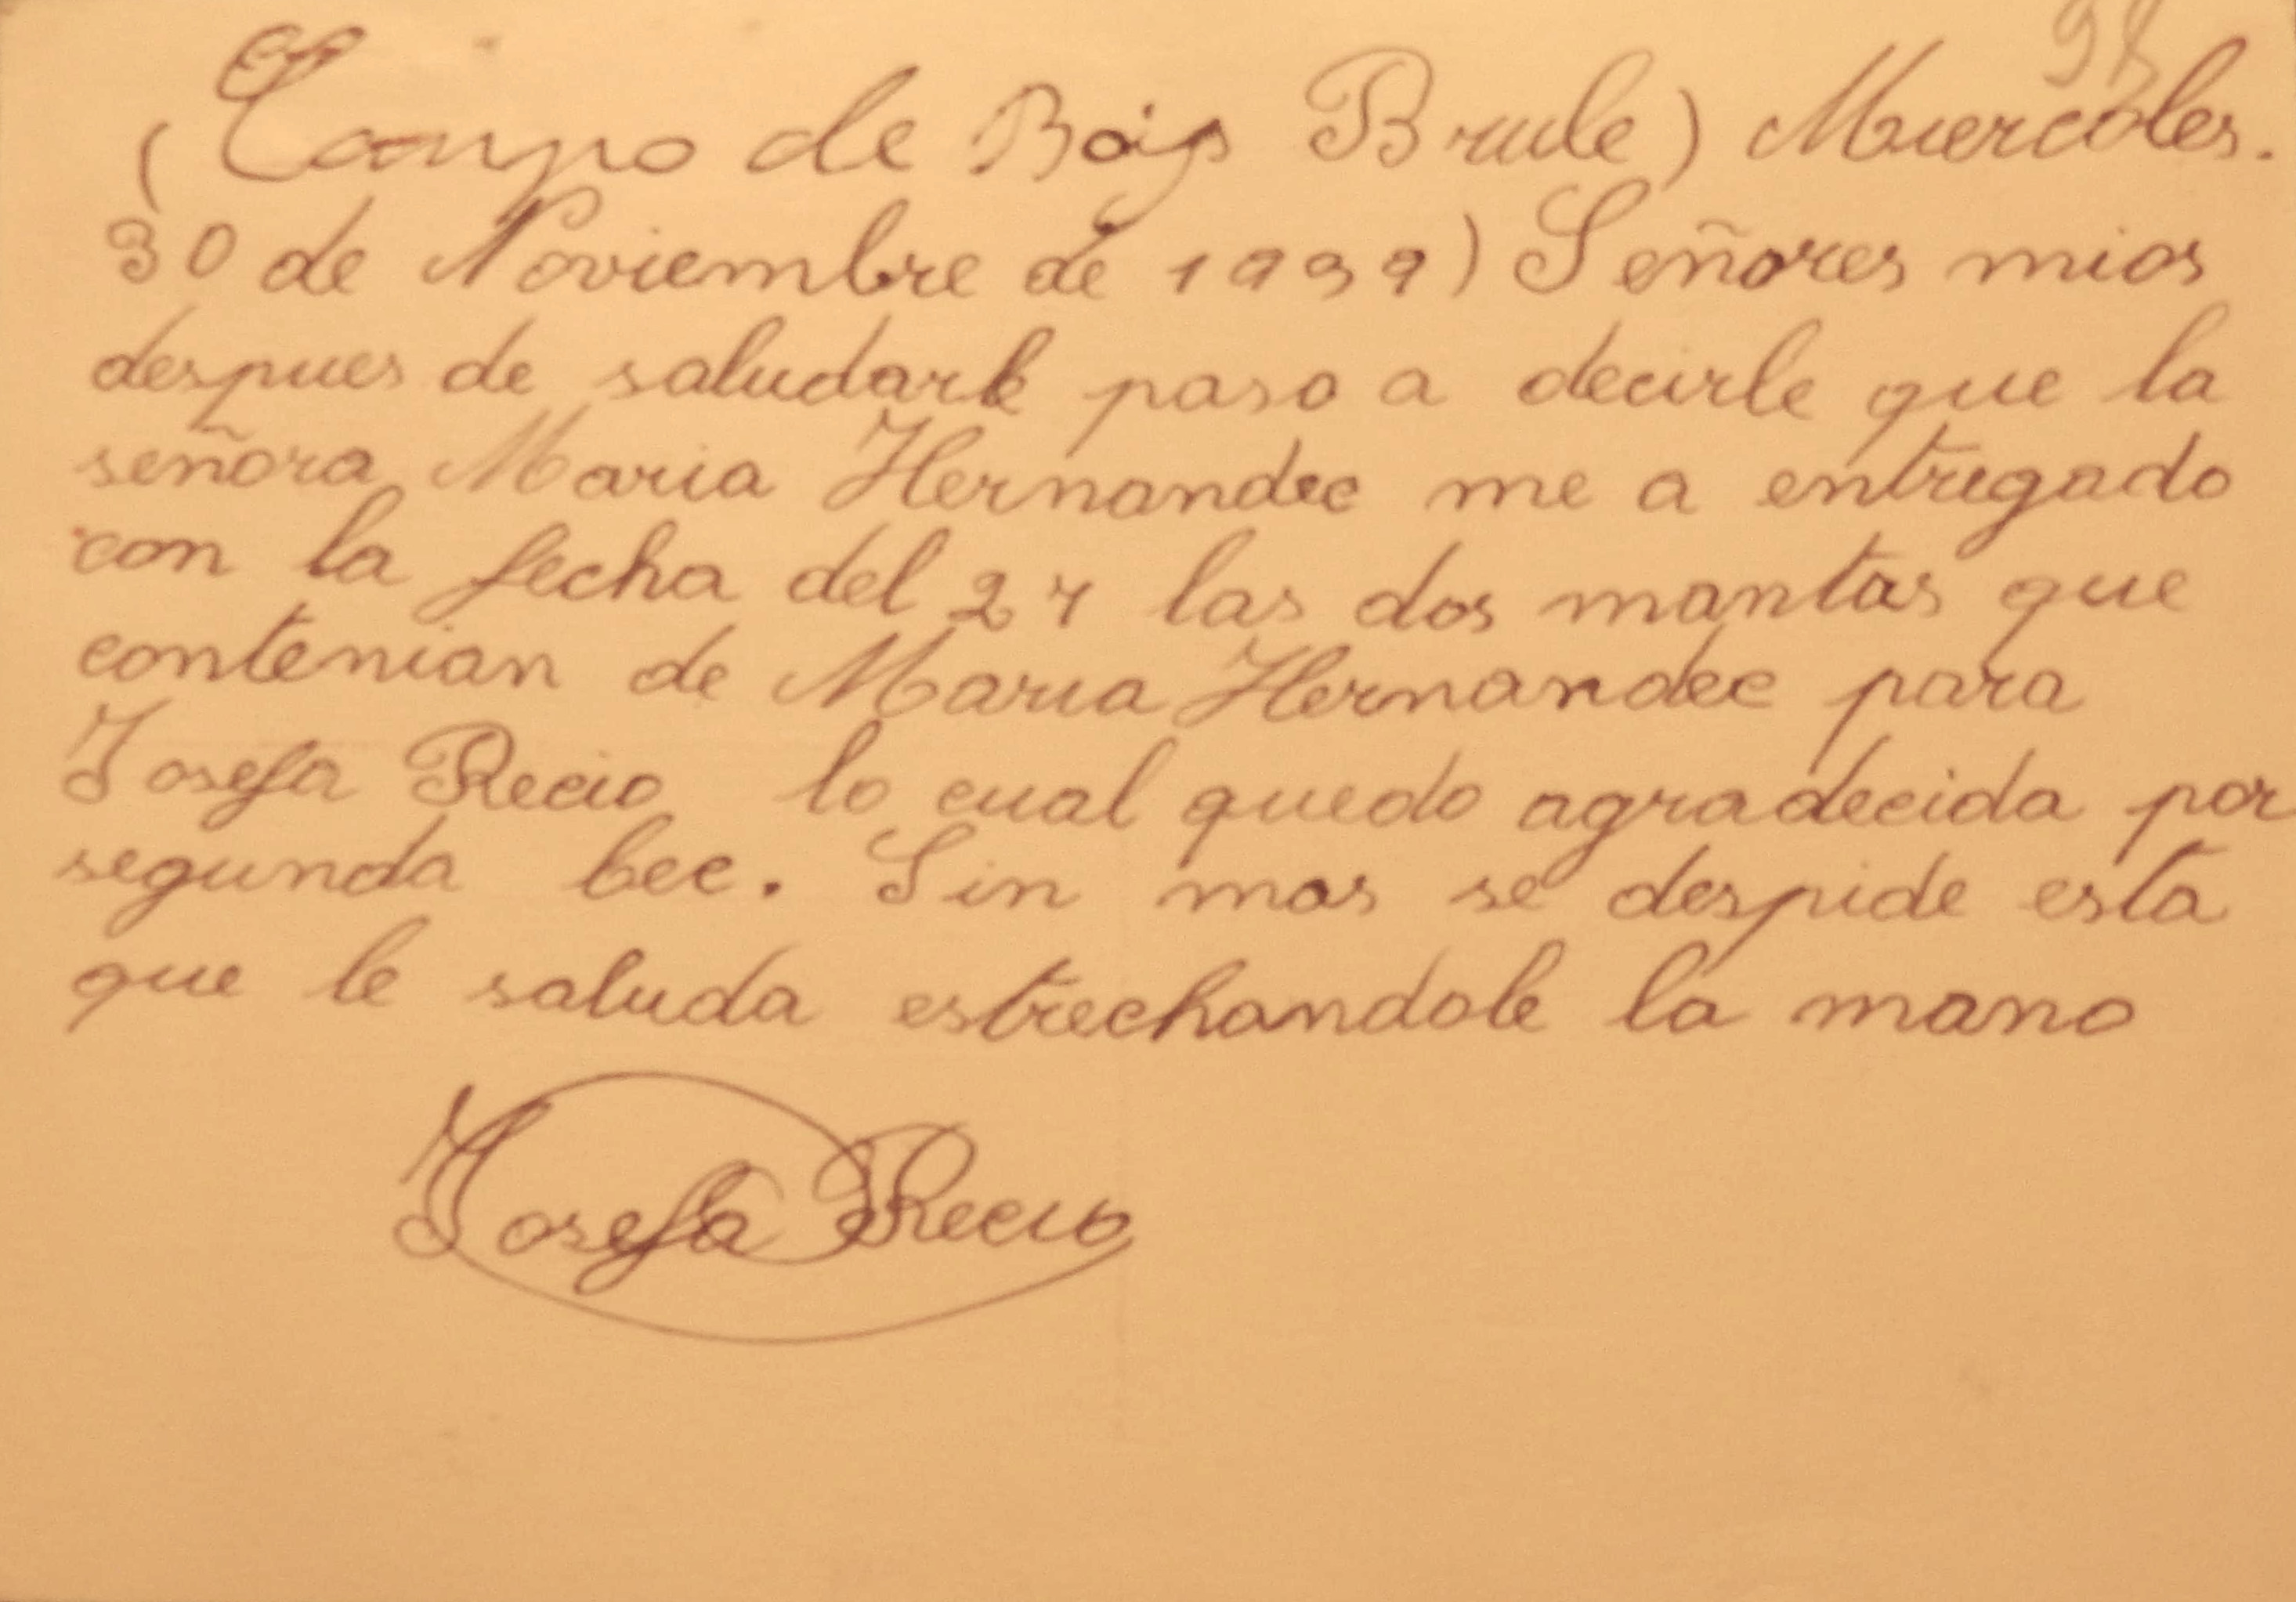 98
(Campo de Bois Brule) Miercoles.
30 de Noviembre de 1939) Señores mios
despues de saludarle paso a decirle que la
señora Maria Hernandec me a entregado
con la fecha del 27 las dos mantas que
contenian de Maria Hernandec para
Josefa Recio lo cual quedo agradecida por
segunda bec. Sin mas se despide esta
que le saluda estrechandole la mano
Josefa Recio